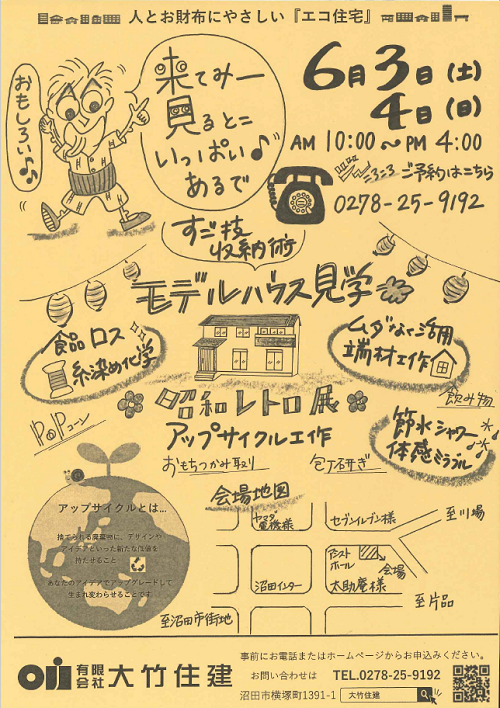 人とお財布にやさしい『エコ住宅』
おもしろい♪♪
来てみー
見るとこ
いっぱい♪
あるで
6月3日(土)
4日(日)
AM 10:00～PM 4:00
ご予約はこちら
0278-25-9192
すご技
収納術
モデルハウス見学
食品ロス
糸染め化学
ムダなく活用
端材工作
飲み物
昭和レトロ展
アップサイクル工作
POPコーン
おもちつかみ取り
包丁研ぎ
節水シャワー
体感ミラブル
アップサイクルとは…
捨てられる廃棄物に、デザインや
アイデアといった新たな価値を
持たせること
あなたのアイデアでアップグレードして
生まれ変わらせることです
会場地図
ヤマダ
電機様
セブンイレブン様
至川場
沼田インター
ホール
会場
太助庵様
至片品
至沼田市街地
oji 有限会社 大竹住建
事前にお電話またはホームページからお申込みください。
お問い合わせは TEL.0278-25-9192
沼田市横塚町1391-1 大竹住建